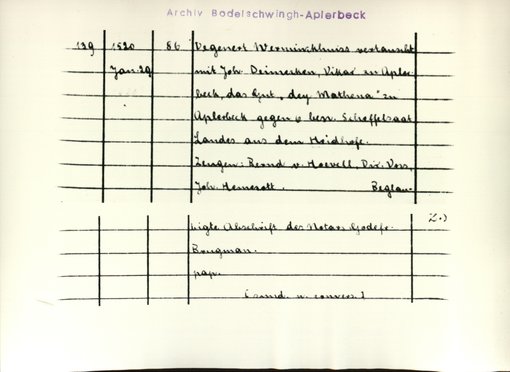 Archiv Bodelschwingh-Aplerbeck
139 1520 86 Degenert Werminckhuiss vertauscht
Jan. 29 mit Joh. Deimerken, Vikar in Apler-
beck, das Gut "dey Mathena" zu
Aplerbeck gegen 6 besr. Scheffelsaat
Landes aus dem Hoidhofe.
Zeugen: Bernd v. Hoevell, Dir. Voss,
Joh. Hemerott. Beglau-
2.)
bigte Abschrift des Notars Godefr.
Brugman.
pap.